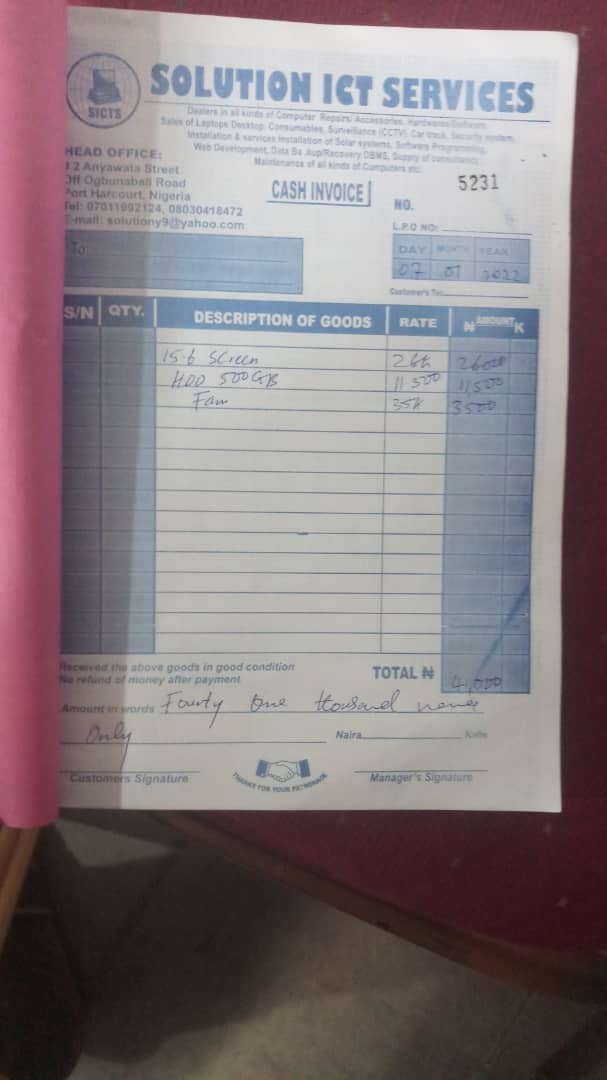 SICTS
SOLUTION ICT SERVICES
Dealers in all kinds of Computer Repairs/ Accessories, Hardwares/Software
Sales of Laptops Desktop, Consumables, Surveillance (CCTV), Car track, Security system,
Installation & services Installation of Solar systems, Software Programming,
Web Development, Data Backup/Recovery DBMS, Supply of consultancy
Maintenance of all kinds of Computers etc.
HEAD OFFICE:
2 Anyawata Street
Off Ogbunabali Road
Port Harcourt, Nigeria
Tel: 07011992124, 08030418472
E-mail: solutiony9@yahoo.com
CASH INVOICE
NO. 5231
L.P.O NO:
To
DAY MONTH YEAR
07 01 2022
Customer's Tel:
S/N QTY. DESCRIPTION OF GOODS RATE ₦ AMOUNT K
15.6 Screen 26k 26000
HDD 500GB 11.500 11,500
Fan 35H 3500
Received the above goods in good condition
No refund of money after payment
TOTAL ₦ 41,000
Amount in words Fourty One thousand
Only Naira Kobo
Customers Signature
THANKS FOR YOUR PATRONAGE
Manager's Signature